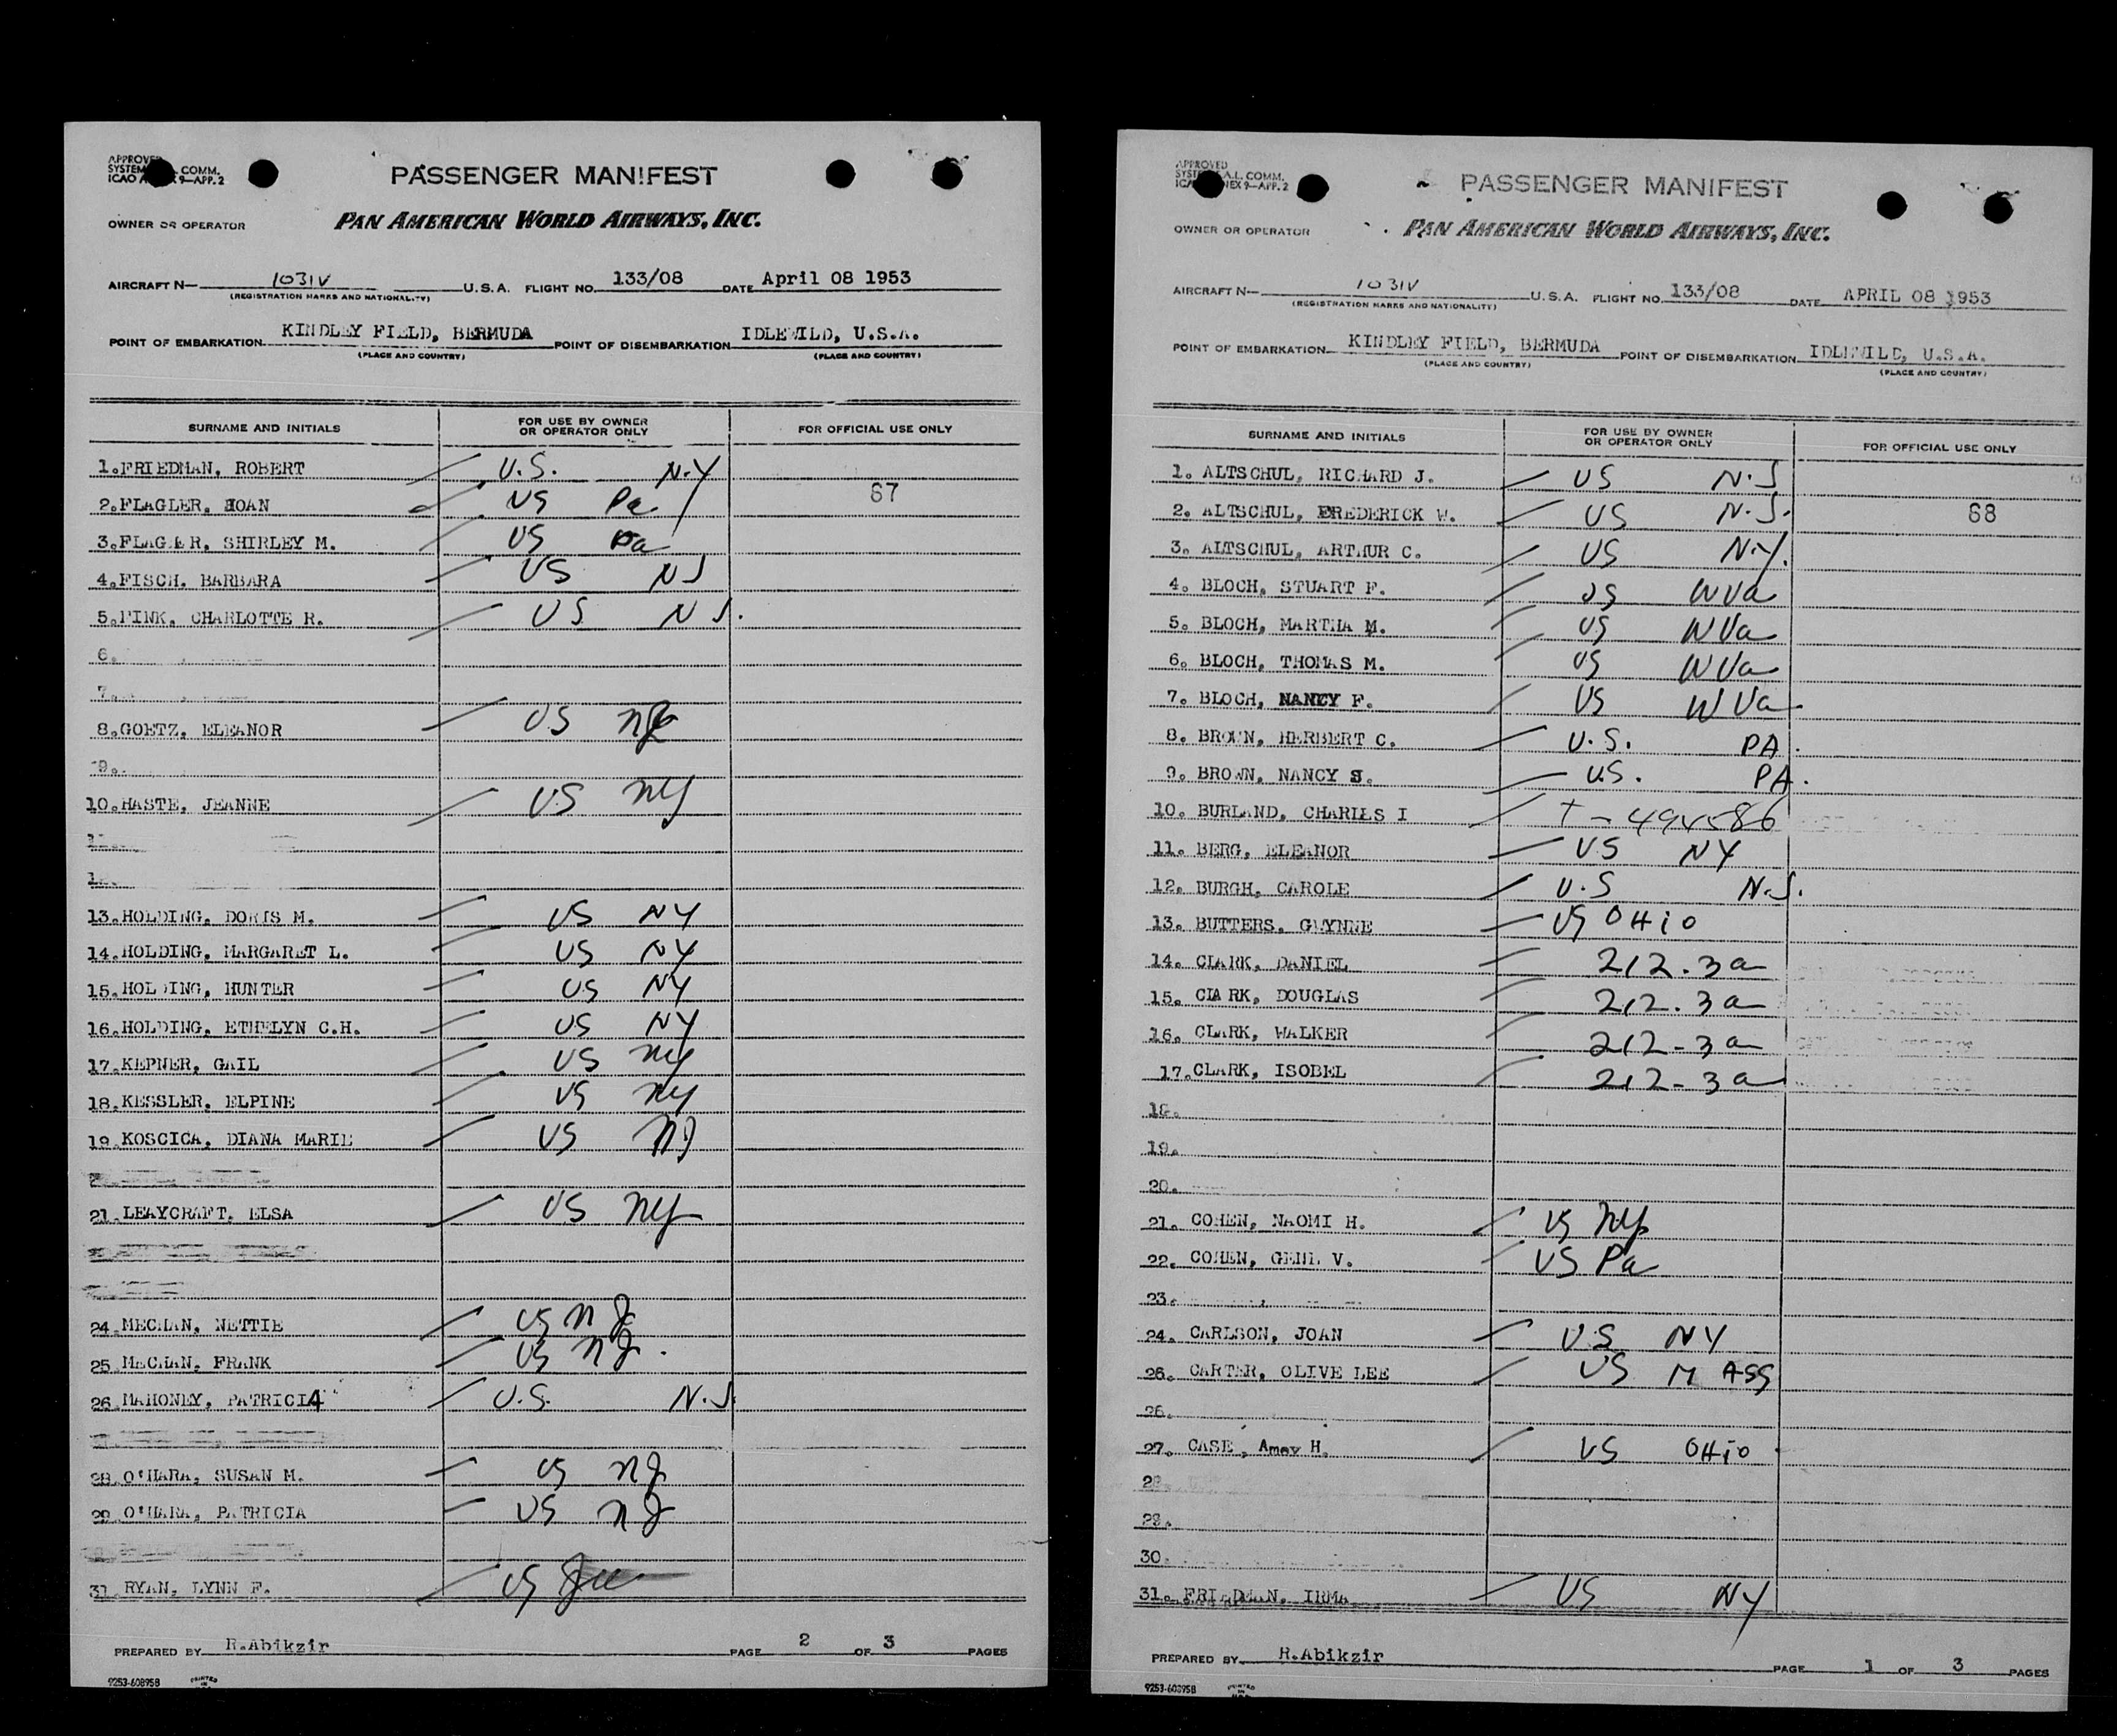 APPROVED
SYSTEM COMM.
ICAO 9—APP. 2
PASSENGER MANIFEST
OWNER OR OPERATOR PAN AMERICAN WORLD AIRWAYS, INC.
AIRCRAFT N— 1031V U.S.A. FLIGHT NO. 133/08 DATE April 08 1953
(REGISTRATION MARKS AND NATIONALITY)
POINT OF EMBARKATION KINDLEY FIELD, BERMUDA POINT OF DISEMBARKATION IDLEWILD, U.S.A.
(PLACE AND COUNTRY) (PLACE AND COUNTRY)
SURNAME AND INITIALS FOR USE BY OWNER OR OPERATOR ONLY FOR OFFICIAL USE ONLY
1. FRIEDMAN, ROBERT U.S. N.Y
2. FLAGLER, JOAN US Pa 67
3. FLAGLER, SHIRLEY M. US Pa
4. FISCH, BARBARA US NJ
5. FINK, CHARLOTTE R. US NJ.
6.
7.
8. GOETZ, ELEANOR US NJ
9.
10. HASTE, JEANNE US NY
11.
13. HOLDING, DORIS M. US NY
14. HOLDING, MARGARET L. US NY
15. HOLDING, HUNTER US NY
16. HOLDING, ETHELYN C.H. US NY
17. KEPNER, GAIL US NY
18. KESSLER, ELPINE US NY
19. KOSCICA, DIANA MARIE US NJ
21. LEAYCRAFT, ELSA US NY
24. MECHAN, NETTIE US NJ
25. MECHAN, FRANK US NJ.
26. MAHONEY, PATRICIA U.S. N.J.
28. O'HARA, SUSAN M. US NJ
29. O'HARA, PATRICIA US NJ
31. RYAN, LYNN F. US
PREPARED BY R.Abikzir PAGE 2 OF 3 PAGES
9253-608958 PRINTED IN
APPROVED
SYSTEM A.L. COMM.
ICAO ANNEX 9—APP. 2
PASSENGER MANIFEST
OWNER OR OPERATOR PAN AMERICAN WORLD AIRWAYS, INC.
AIRCRAFT N— 1031V U.S.A. FLIGHT NO. 133/08 DATE APRIL 08 1953
(REGISTRATION MARKS AND NATIONALITY)
POINT OF EMBARKATION KINDLEY FIELD, BERMUDA POINT OF DISEMBARKATION IDLEWILD, U.S.A.
(PLACE AND COUNTRY) (PLACE AND COUNTRY)
SURNAME AND INITIALS FOR USE BY OWNER OR OPERATOR ONLY FOR OFFICIAL USE ONLY
1. ALTSCHUL, RICHARD J. US N.J
2. ALTSCHUL, FREDERICK W. US N.J. 68
3. ALTSCHUL, ARTHUR C. US N.Y.
4. BLOCH, STUART F. US WVa
5. BLOCH, MARTHA M. US WVa
6. BLOCH, THOMAS M. US WVa
7. BLOCH, NANCY F. US WVa
8. BROWN, HERBERT C. U.S. PA.
9. BROWN, NANCY S. U.S. PA.
10. BURLAND, CHARLES I T-494586
11. BERG, ELEANOR US NY
12. BURGH, CAROLE U.S N.J.
13. BUTTERS, GWYNNE US OHio
14. CLARK, DANIEL 212.3a
15. CLARK, DOUGLAS 212.3a
16. CLARK, WALKER 212-3a
17. CLARK, ISOBEL 212-3a
18.
19.
20.
21. COHEN, NAOMI H. US NY
22. COHEN, V. US Pa
23.
24. CARLSON, JOAN US NY
26. CARTER, OLIVE LEE US MASS
26.
27. CASE, Amey H. US OHio
28
29.
30.
31. FRIEDMAN, IRMA US NY
PREPARED BY R.Abikzir PAGE 1 OF 3 PAGES
9253-608958 PRINTED IN